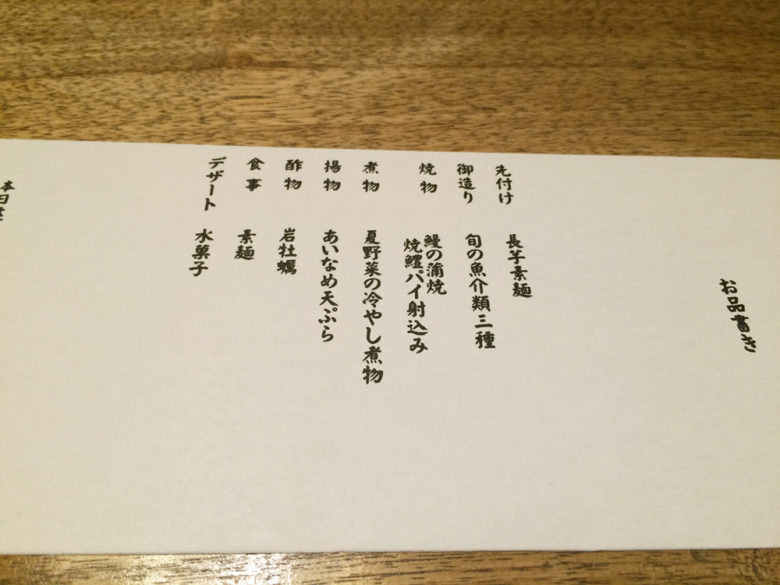 お品書き
先付け 長芋素麺
御造り 旬の魚介類三種
焼物 鰻の蒲焼
焼鱧パイ射込み
煮物 夏野菜の冷やし煮物
揚物 あいなめ天ぷら
酢物 岩牡蠣
食事 素麺
デザート 水菓子
本日は